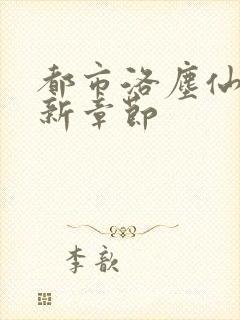 都市洛塵仙
新章節
李歆